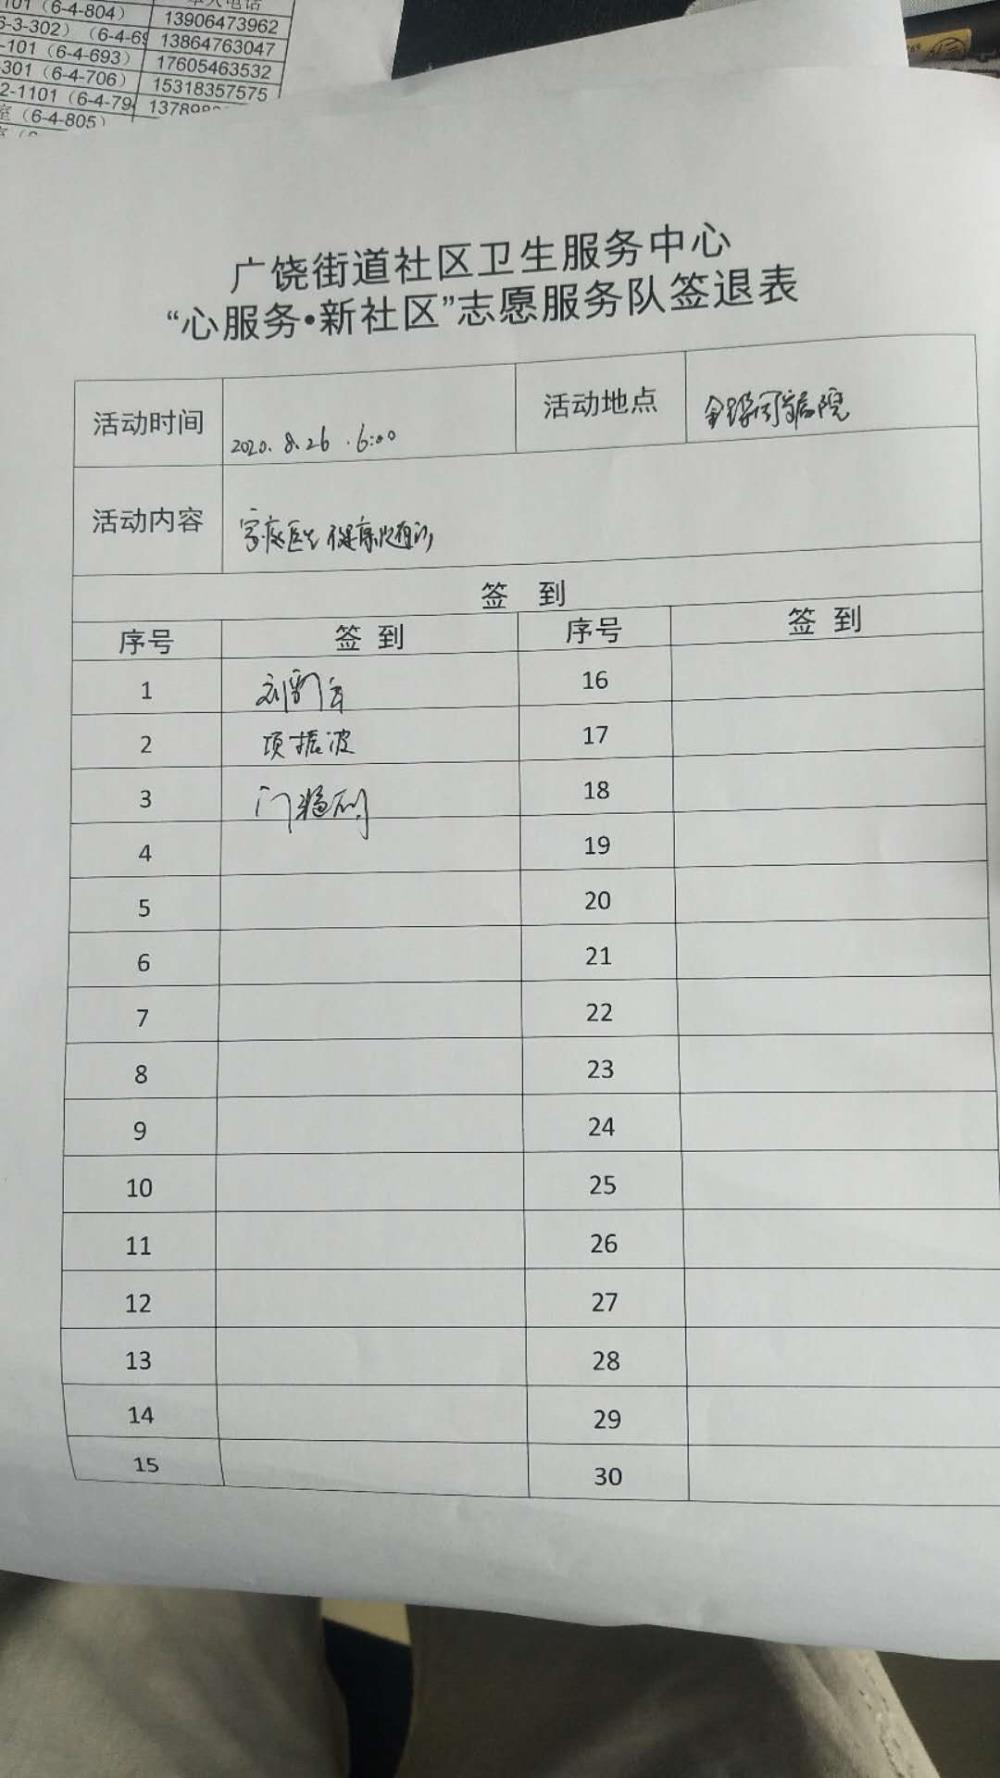 101（6-4-804）
13906473962
6-3-302）（6-4-69
13864763047
-101（6-4-693）
17605463532
301（6-4-706）
15318357575
2-1101（6-4-79
137898
室（6-4-805）
广饶街道社区卫生服务中心
“心服务•新社区”志愿服务队签退表
活动时间
2020.8.26.6:00
活动地点
活动内容
家庭医生健康
签 到
序号 签到 序号 签到
1 16
2 项振波 17
3 18
4 19
5 20
6 21
7 22
8 23
9 24
10 25
11 26
12 27
13 28
14 29
15 30